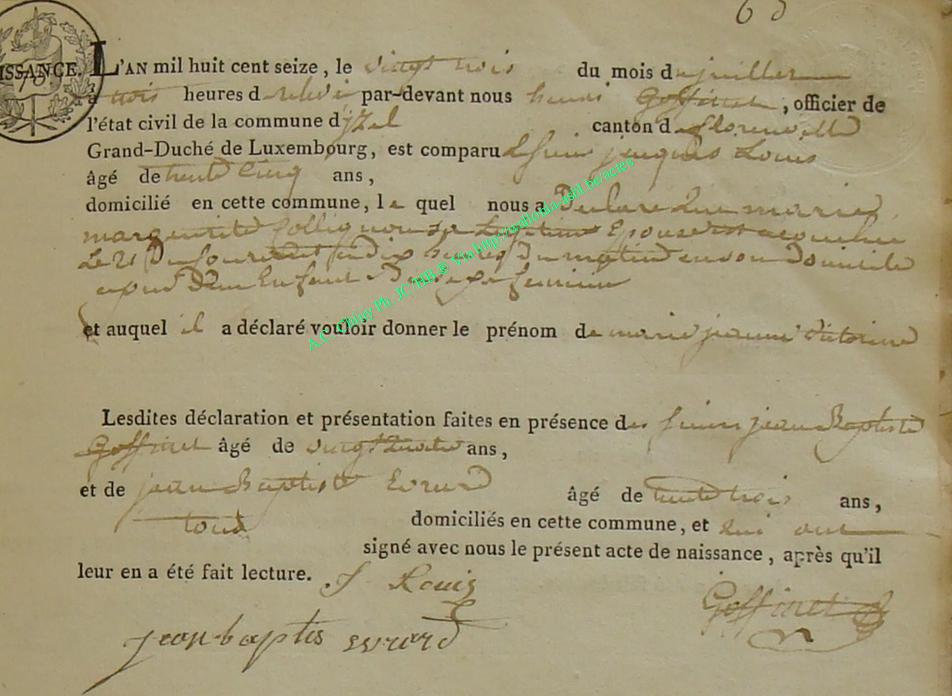 65
ISSANCE. L'AN mil huit cent seize, le vingt trois du mois de juillet
à trois heures de relevé par-devant nous henri Goffinet, officier de
l'état civil de la commune d'jzel canton de florenville
Grand-Duché de Luxembourg, est comparu le sieur jacques Louis
âgé de trente Cinq ans,
domicilié en cette commune, le quel nous a Declaré que marie
marguerite Collignon Sa Legitime Epouse est accouchée
Le 21 Du Courant a dix heures Du matin en son Domicile
D'un Enfant Du Sexe feminin
et auquel il a déclaré vouloir donner le prénom de marie jeanne victorine
Lesdites déclaration et présentation faites en présence des sieurs jean Baptiste
Goffinet âgé de vingt ans,
et de jean Baptiste Evrard âgé de trente trois ans,
tous domiciliés en cette commune, et qui ont
signé avec nous le présent acte de naissance, après qu'il
leur en a été fait lecture. J Louis
Goffinet
jean-baptis evrard